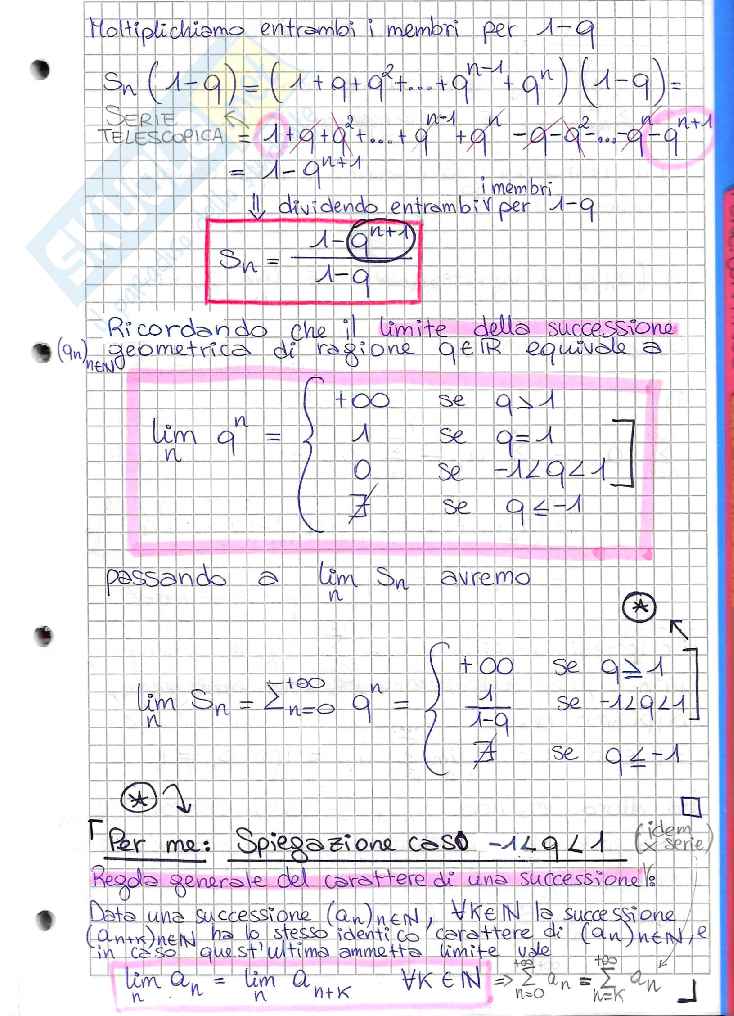 Moltiplichiamo entrambi i membri per 1-q
Sn (1-q) = (1+q+q²+...+qⁿ⁻¹+qⁿ)(1-q)=
SERIE TELESCOPICA = 1+q+q²+...+qⁿ⁻¹+qⁿ-q-q²-...-qⁿ-qⁿ⁺¹
= 1-qⁿ⁺¹
⇓ dividendo entrambi i membri per 1-q
Sn = (1-qⁿ⁺¹)/(1-q)
Ricordando che il limite della successione
(qn)n∈ℕ geometrica di ragione q∈ℝ equivale a
lim n qⁿ = {
+∞ se q>1
1 se q=1
0 se -1<q<1
∄ se q≤-1
passando a lim n Sn avremo
(*)
lim n Sn = Σ n=0 +∞ qⁿ = {
+∞ se q≥1
1/(1-q) se -1<q<1
∄ se q≤-1
(*)
Per me: Spiegazione caso -1<q<1 (idem x serie)
Regola generale del carattere di una successione:
Data una successione (an)n∈ℕ, ∀K∈ℕ la successione
(an+k)n∈ℕ ha lo stesso identico carattere di (an)n∈ℕ, e
in caso quest'ultima ammetta limite vale
lim n an = lim n an+k ∀K∈ℕ ⇒ Σ n=0 +∞ an = Σ n=k +∞ an